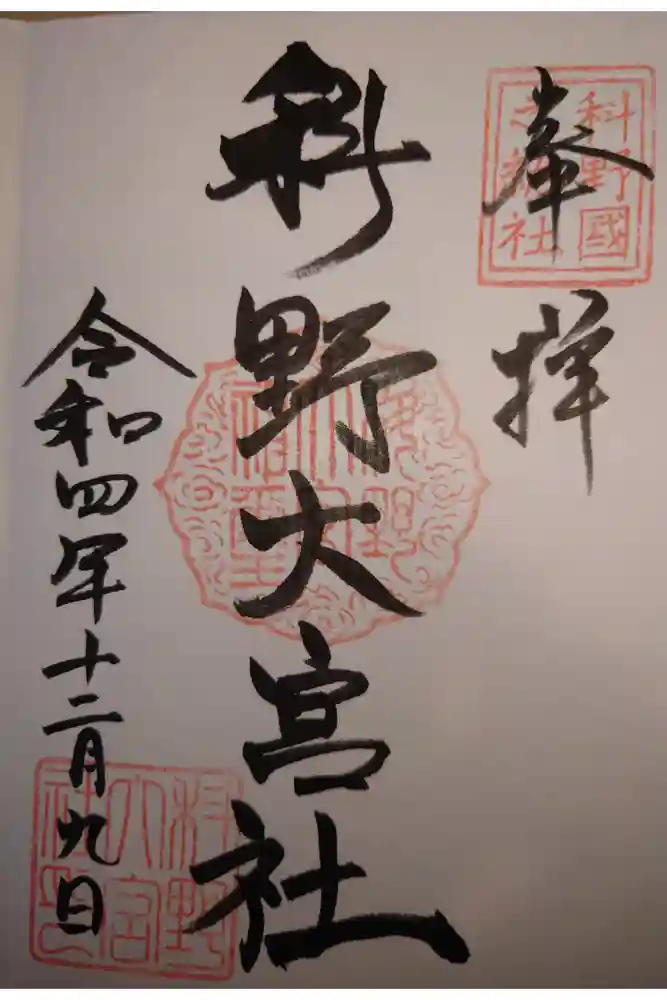 奉拝
科野國
科野大宮社
令和四年十二月九日
科野
大宮
社印